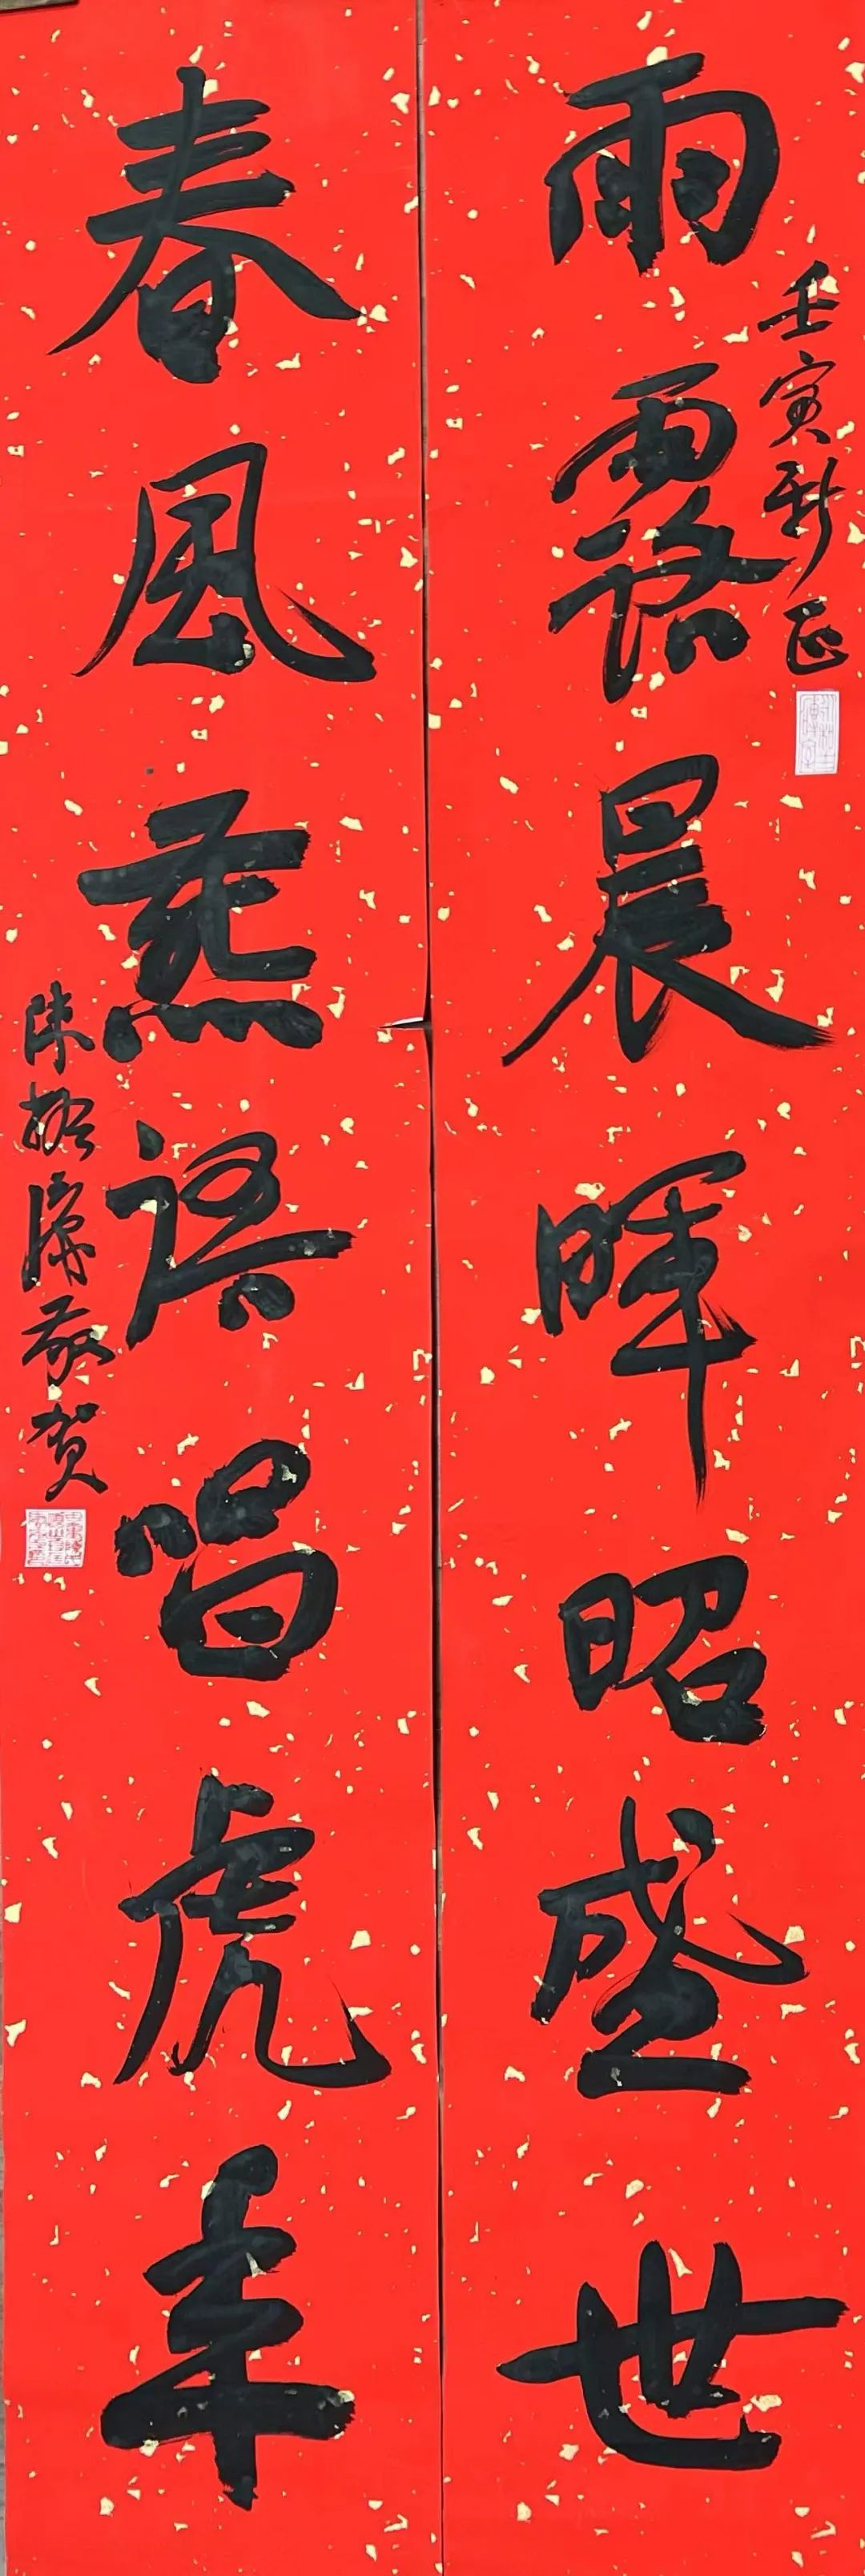 壬寅新正
雨露晨暉昭盛世
春風燕語唱虎年
陳振濂敬賀